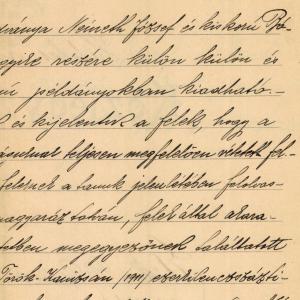 ványa Németh József és kiskorú Bo-
részére külön külön és
példányokban kiadható-
és kijelentik a felek, hogy a
teljesen megfelelően vétetett fel
felejnek a tanuk jelenlétében felolvas-
magyarázás után, felek által akara-
tukban megegyezőnek találtatott
Török-Kanizsán (1911) ezerkilencszáztí-